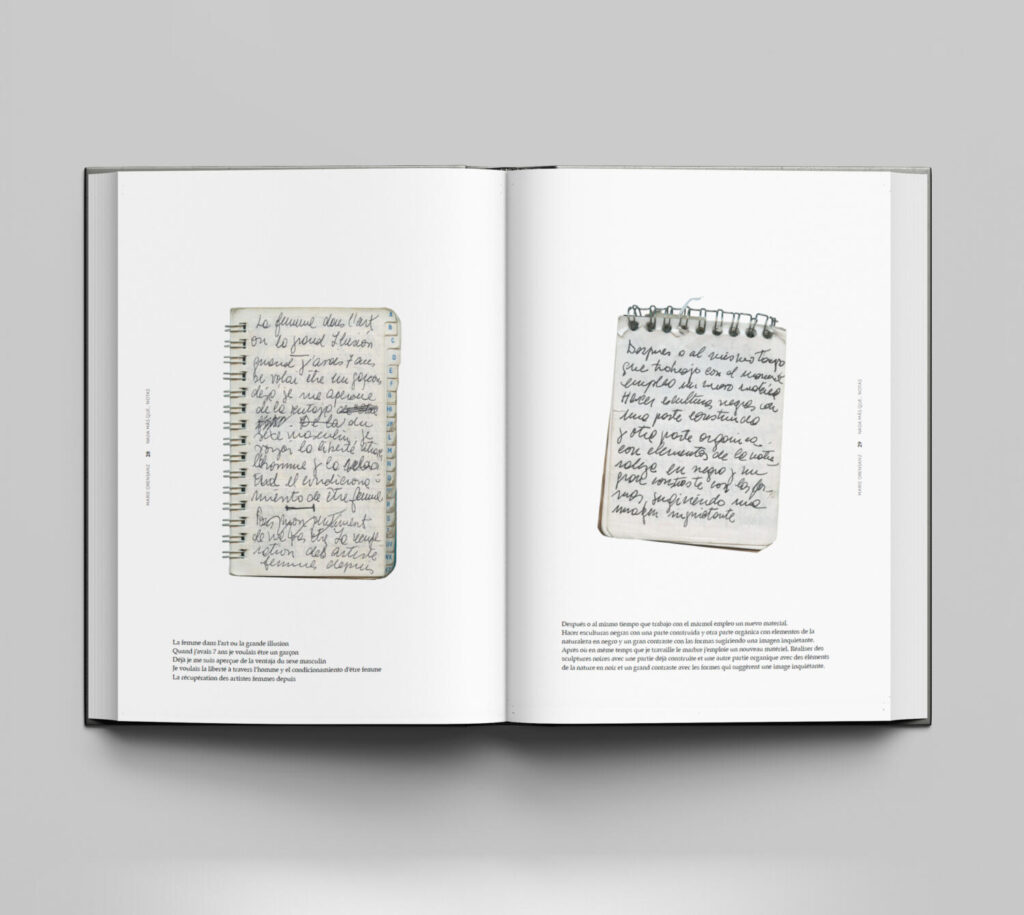 La femme dans l'art
ou la grand Illusion
quand j'avais 7 ans
je
être un garçon
déjà je me
de la
De la du
sexe masculin, je
la liberté
l'homme y la
el
miento de être femme
mon
de ne pas être La
ration des artiste
femmes depuis
A
B
C
D
E
F
MARIE ORENSANZ 28 NADA MÁS QUE... NOTAS
La femme dans l'art ou la grande illusion
Quand j'avais 7 ans je voulais être un garçon
Déjà je me suis aperçue de la ventaja du sexe masculin
Je voulais la liberté à travers l'homme y el condicionamiento d'être femme
La récupération des artistes femmes depuis
Despues o al mismo tiempo
que trabajo con el marmol
empleo un nuevo material
Hacer esculturas negras con
una parte construida
y otra parte organica
con elementos de la natu
raleza en negro y un
gran contraste con las for-
mas, sugiriendo una
imagen inquietante
MARIE ORENSANZ 29 NADA MÁS QUE... NOTAS
Después o al mismo tiempo que trabajo con el mármol empleo un nuevo material.
Hacer esculturas negras con una parte construida y otra parte orgánica con elementos de la
naturalera en negro y un gran contraste con las formas sugiriendo una imagen inquietante.
Après où en même temps que je travaille le marbre j'emploie un nouveau matériel. Réaliser des
sculptures noires avec une partie déjà construite et une autre partie organique avec des éléments
de la nature en noir et un grand contraste avec les formes qui suggèrent une image inquiétante.